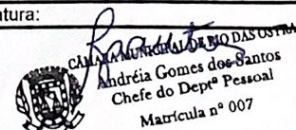 atura:
CÂMARA MUNICIPAL DE RIO DAS OSTRA
Andréia Gomes dos Santos
Chefe do Deptº Pessoal
Matrícula nº 007